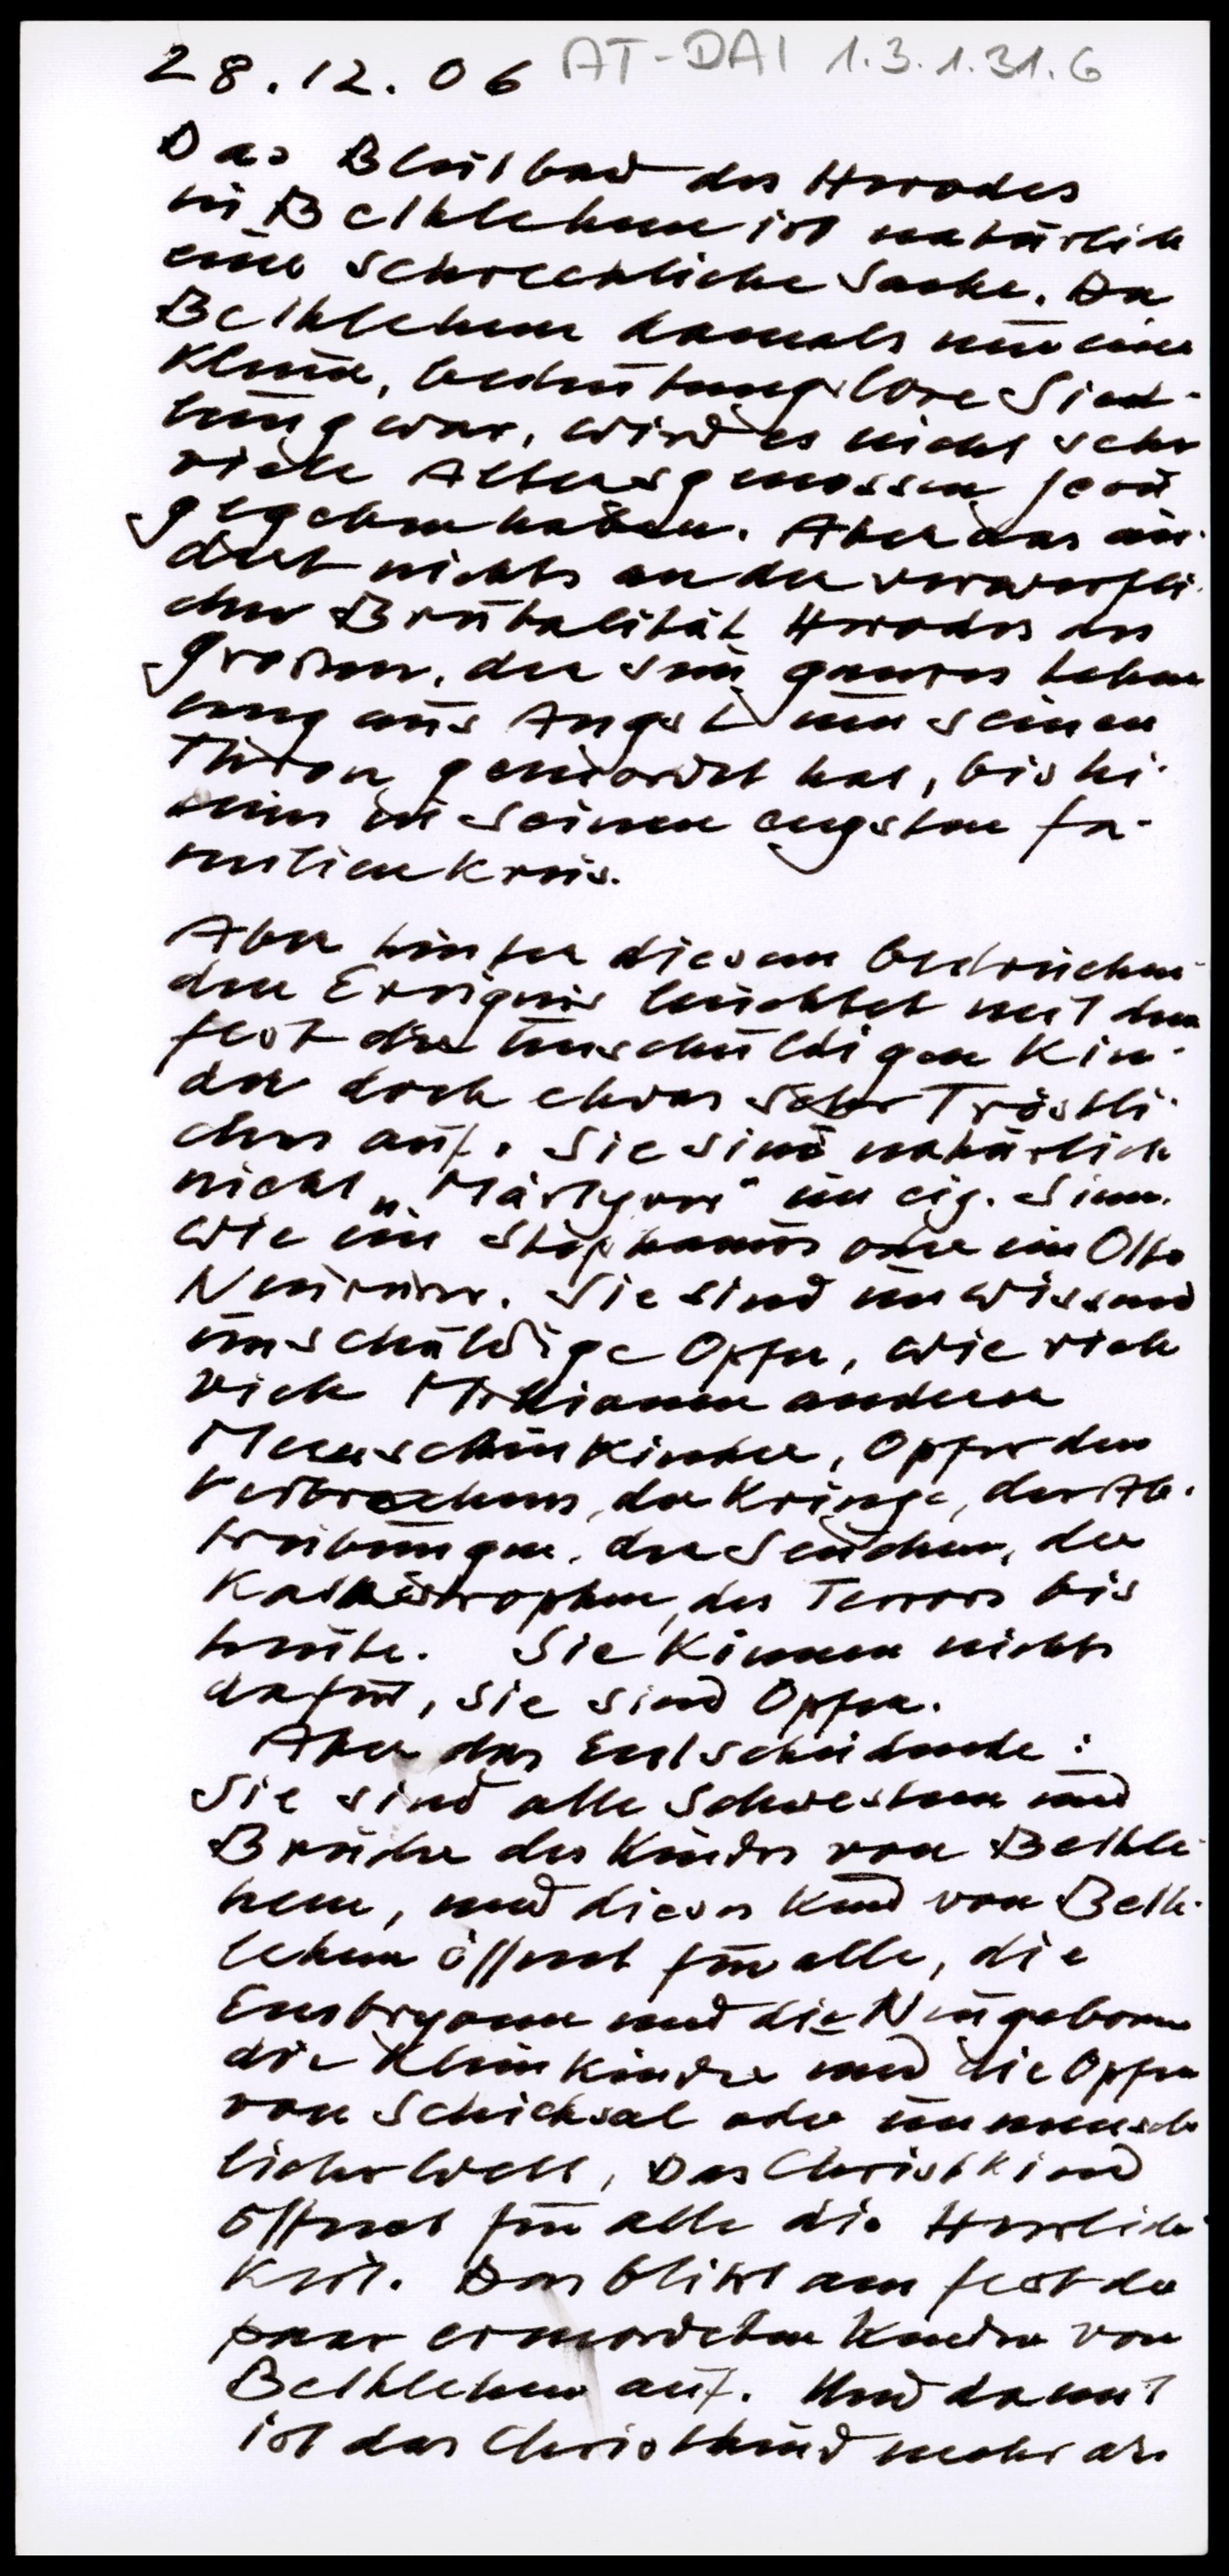 28.12.06 AT-DAI 1.3.1.31.6
Das Blutbad des Herodes
in Bethlehem ist natürlich
eine schreckliche Sache. Da
Bethlehem damals nur eine
kleine, bedeutungslose Sied-
lung war, wird es nicht sehr
viele Altersgenossen Jesu
gegeben haben. Aber das än-
dert nichts an der verwerfli-
chen Brutalität Herodes des
Großen, der sein ganzes Leben
lang aus Angst um seinen
Thron gemordet hat, bis hi-
nein in seinen engsten Fa-
milienkreis.
Aber hinter diesem bedrücken-
den Ereignis leuchtet mit dem
Fest der unschuldigen Kin-
der doch etwas sehr Tröstli-
ches auf. Sie sind natürlich
nicht „Märtyrer" im eig. Sinn.
wie ein Stephanus oder ein Otto
Neururer. Sie sind unwissend
unschuldige Opfer, wie viele
viele Millionen anderer
Menschenkinder, Opfer des
Verbrechens, der Kriege, der Ab-
treibungen, der Seuchen, der
Katastrophen, des Terrors bis
heute. Sie können nichts
dafür, sie sind Opfer.
Aber das Entscheidende:
Sie sind alle Schwestern und
Brüder des Kindes von Bethle-
hem, und dieses Kind von Beth-
lehem öffnet für alle, die
Embryonen und die Neugeborenen
die Kleinkinder und die Opfer
von Schicksal oder unmensch
licher Welt, Das Christkind
öffnet für alle die Herrlich
keit. Das blitzt am Fest der
paar ermordeten Kinder von
Bethlehem auf. Und damit
ist das Christkind mehr als